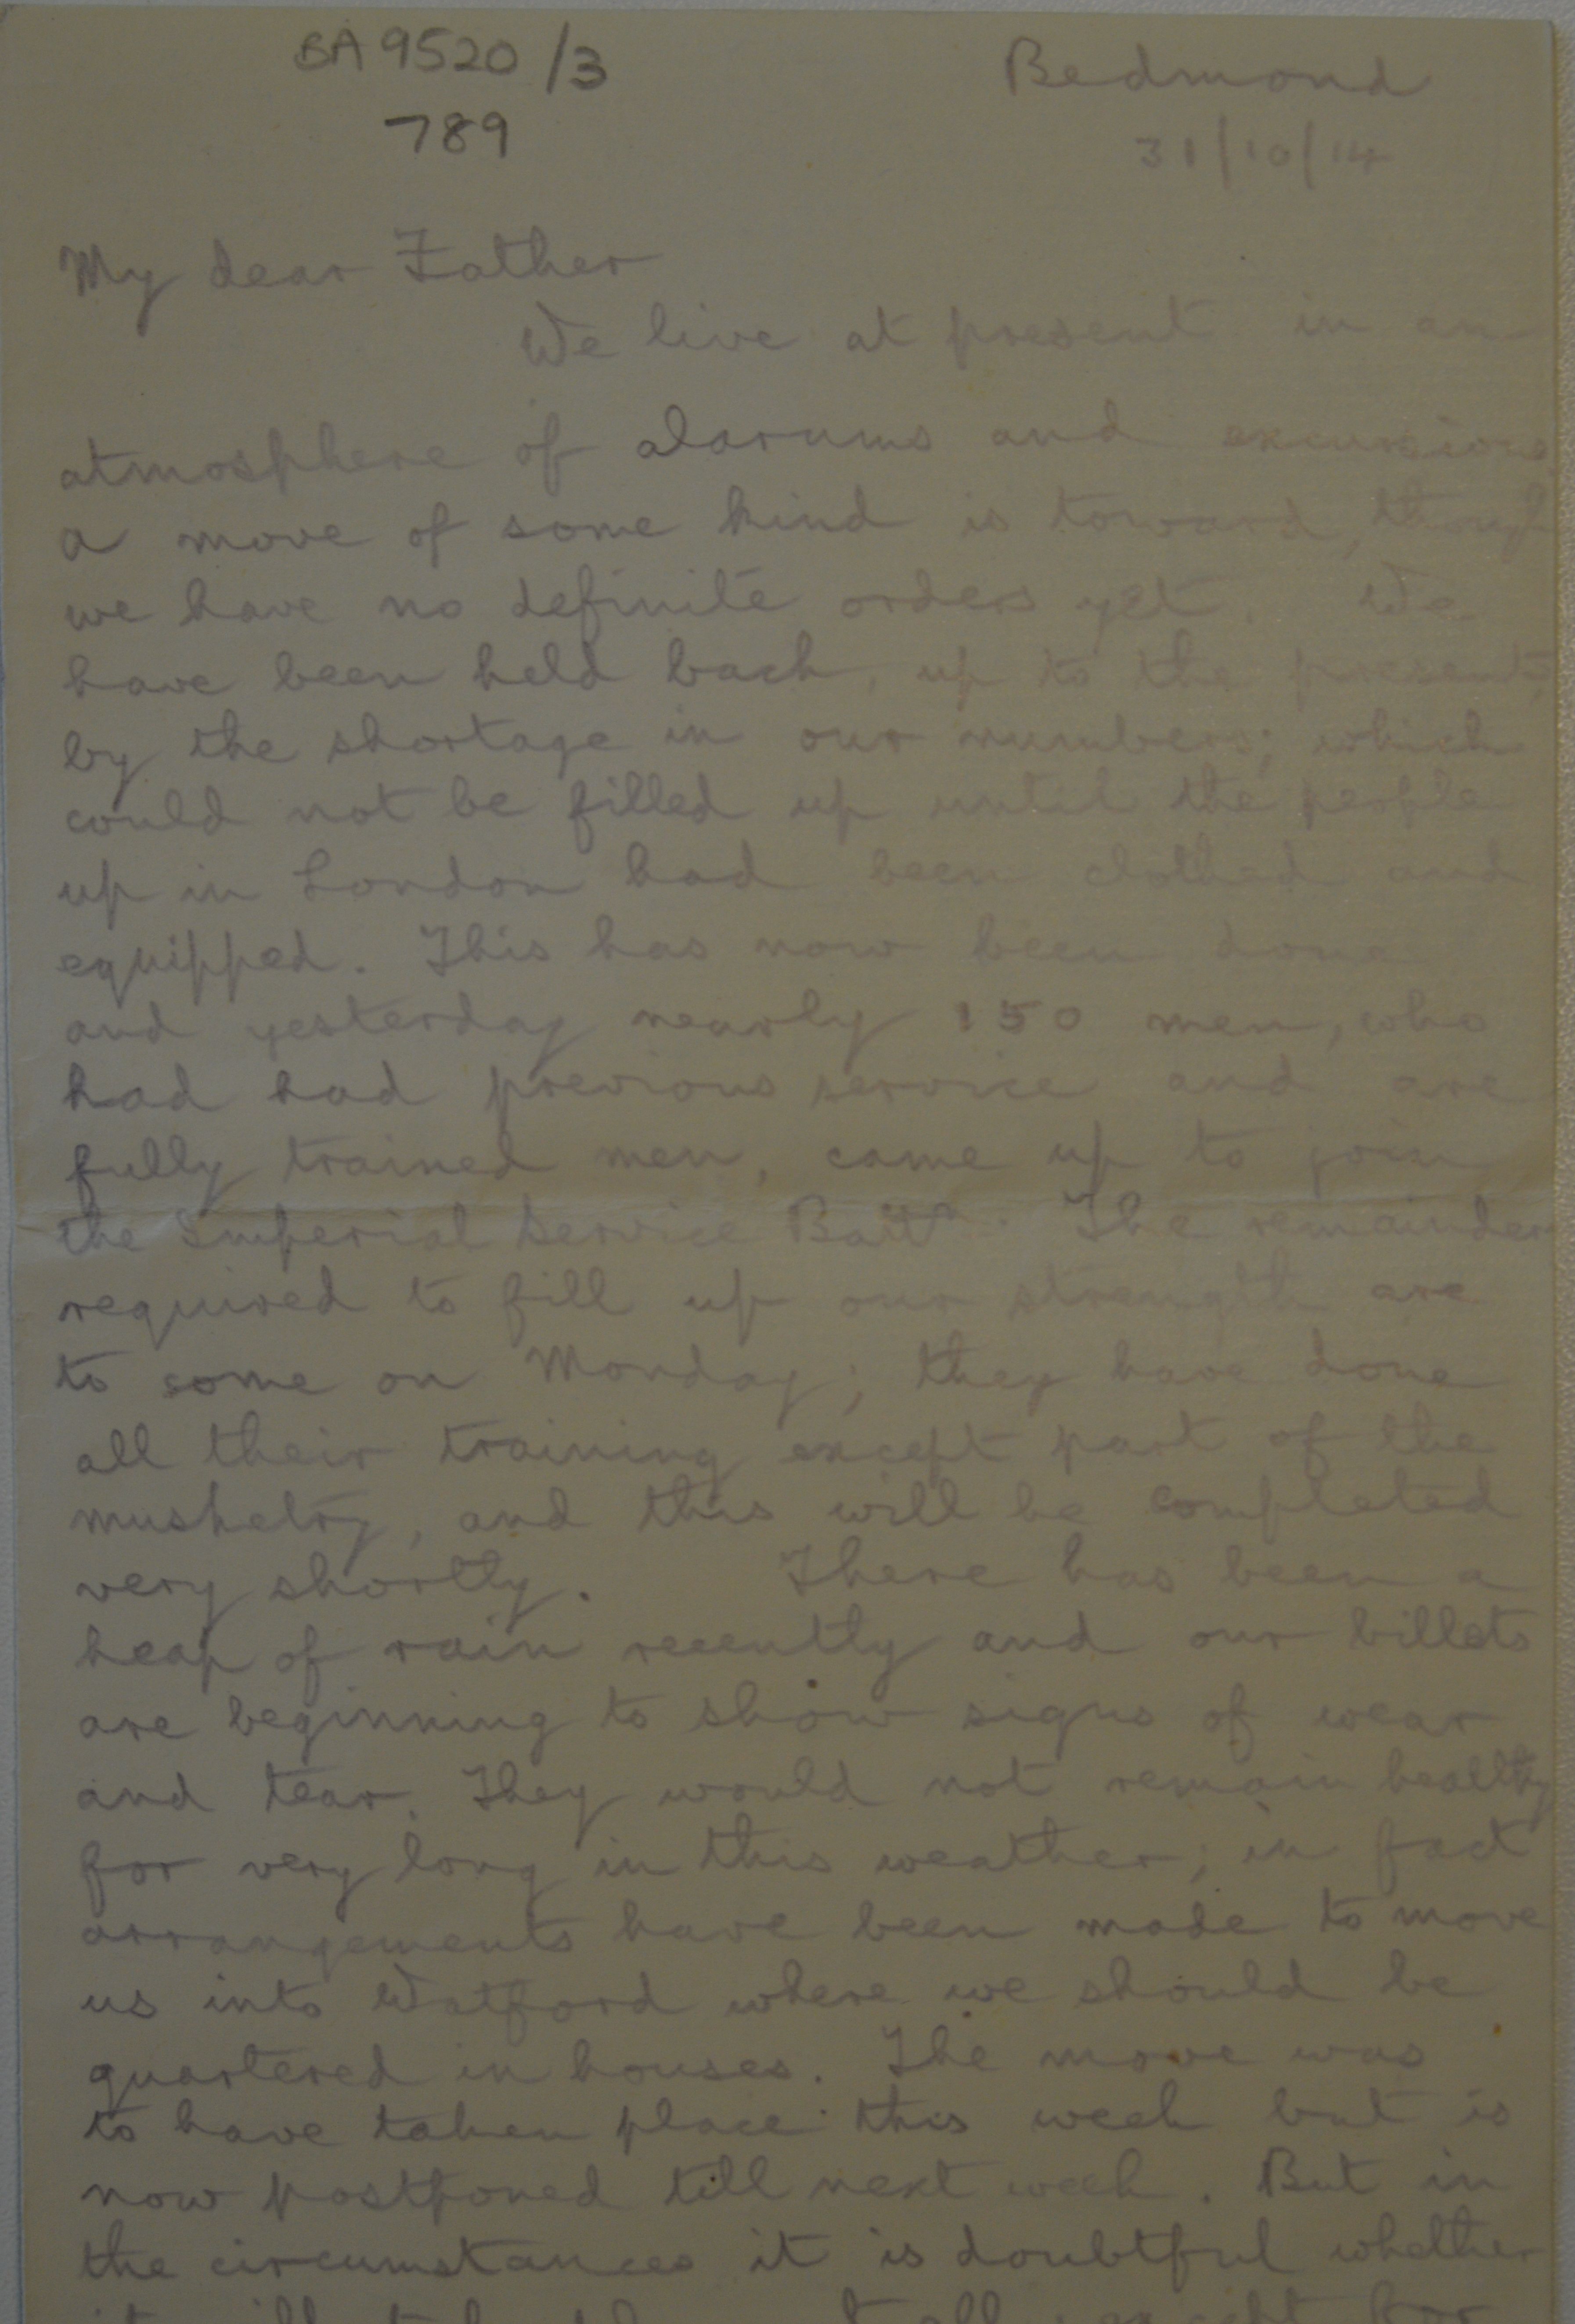 BA 9520/3
789
Bedmond
31/10/14
My dear Father
We live at present in an
atmosphere of alarums and excursions.
A move of some kind is toward, though
we have no definite orders yet. We
have been held back, up to the present,
by the shortage in our numbers; which
could not be filled up until the people
up in London had been clothed and
equipped. This has now been done
and yesterday nearly 150 men, who
had had previous service and are
fully trained men, came up to join
the Imperial Service Batt. The remainder
required to fill up our strength are
to come on Monday; they have done
all their training except part of the
musketry, and this will be completed
very shortly. There has been a
heap of rain recently and our billets
are beginning to show signs of wear
and tear. They would not remain healthy
for very long in this weather; in fact
arrangements have been made to move
us into Watford where we should be
quartered in houses. The move was
to have taken place this week but is
now postponed till next week. But in
the circumstances it is doubtful whether